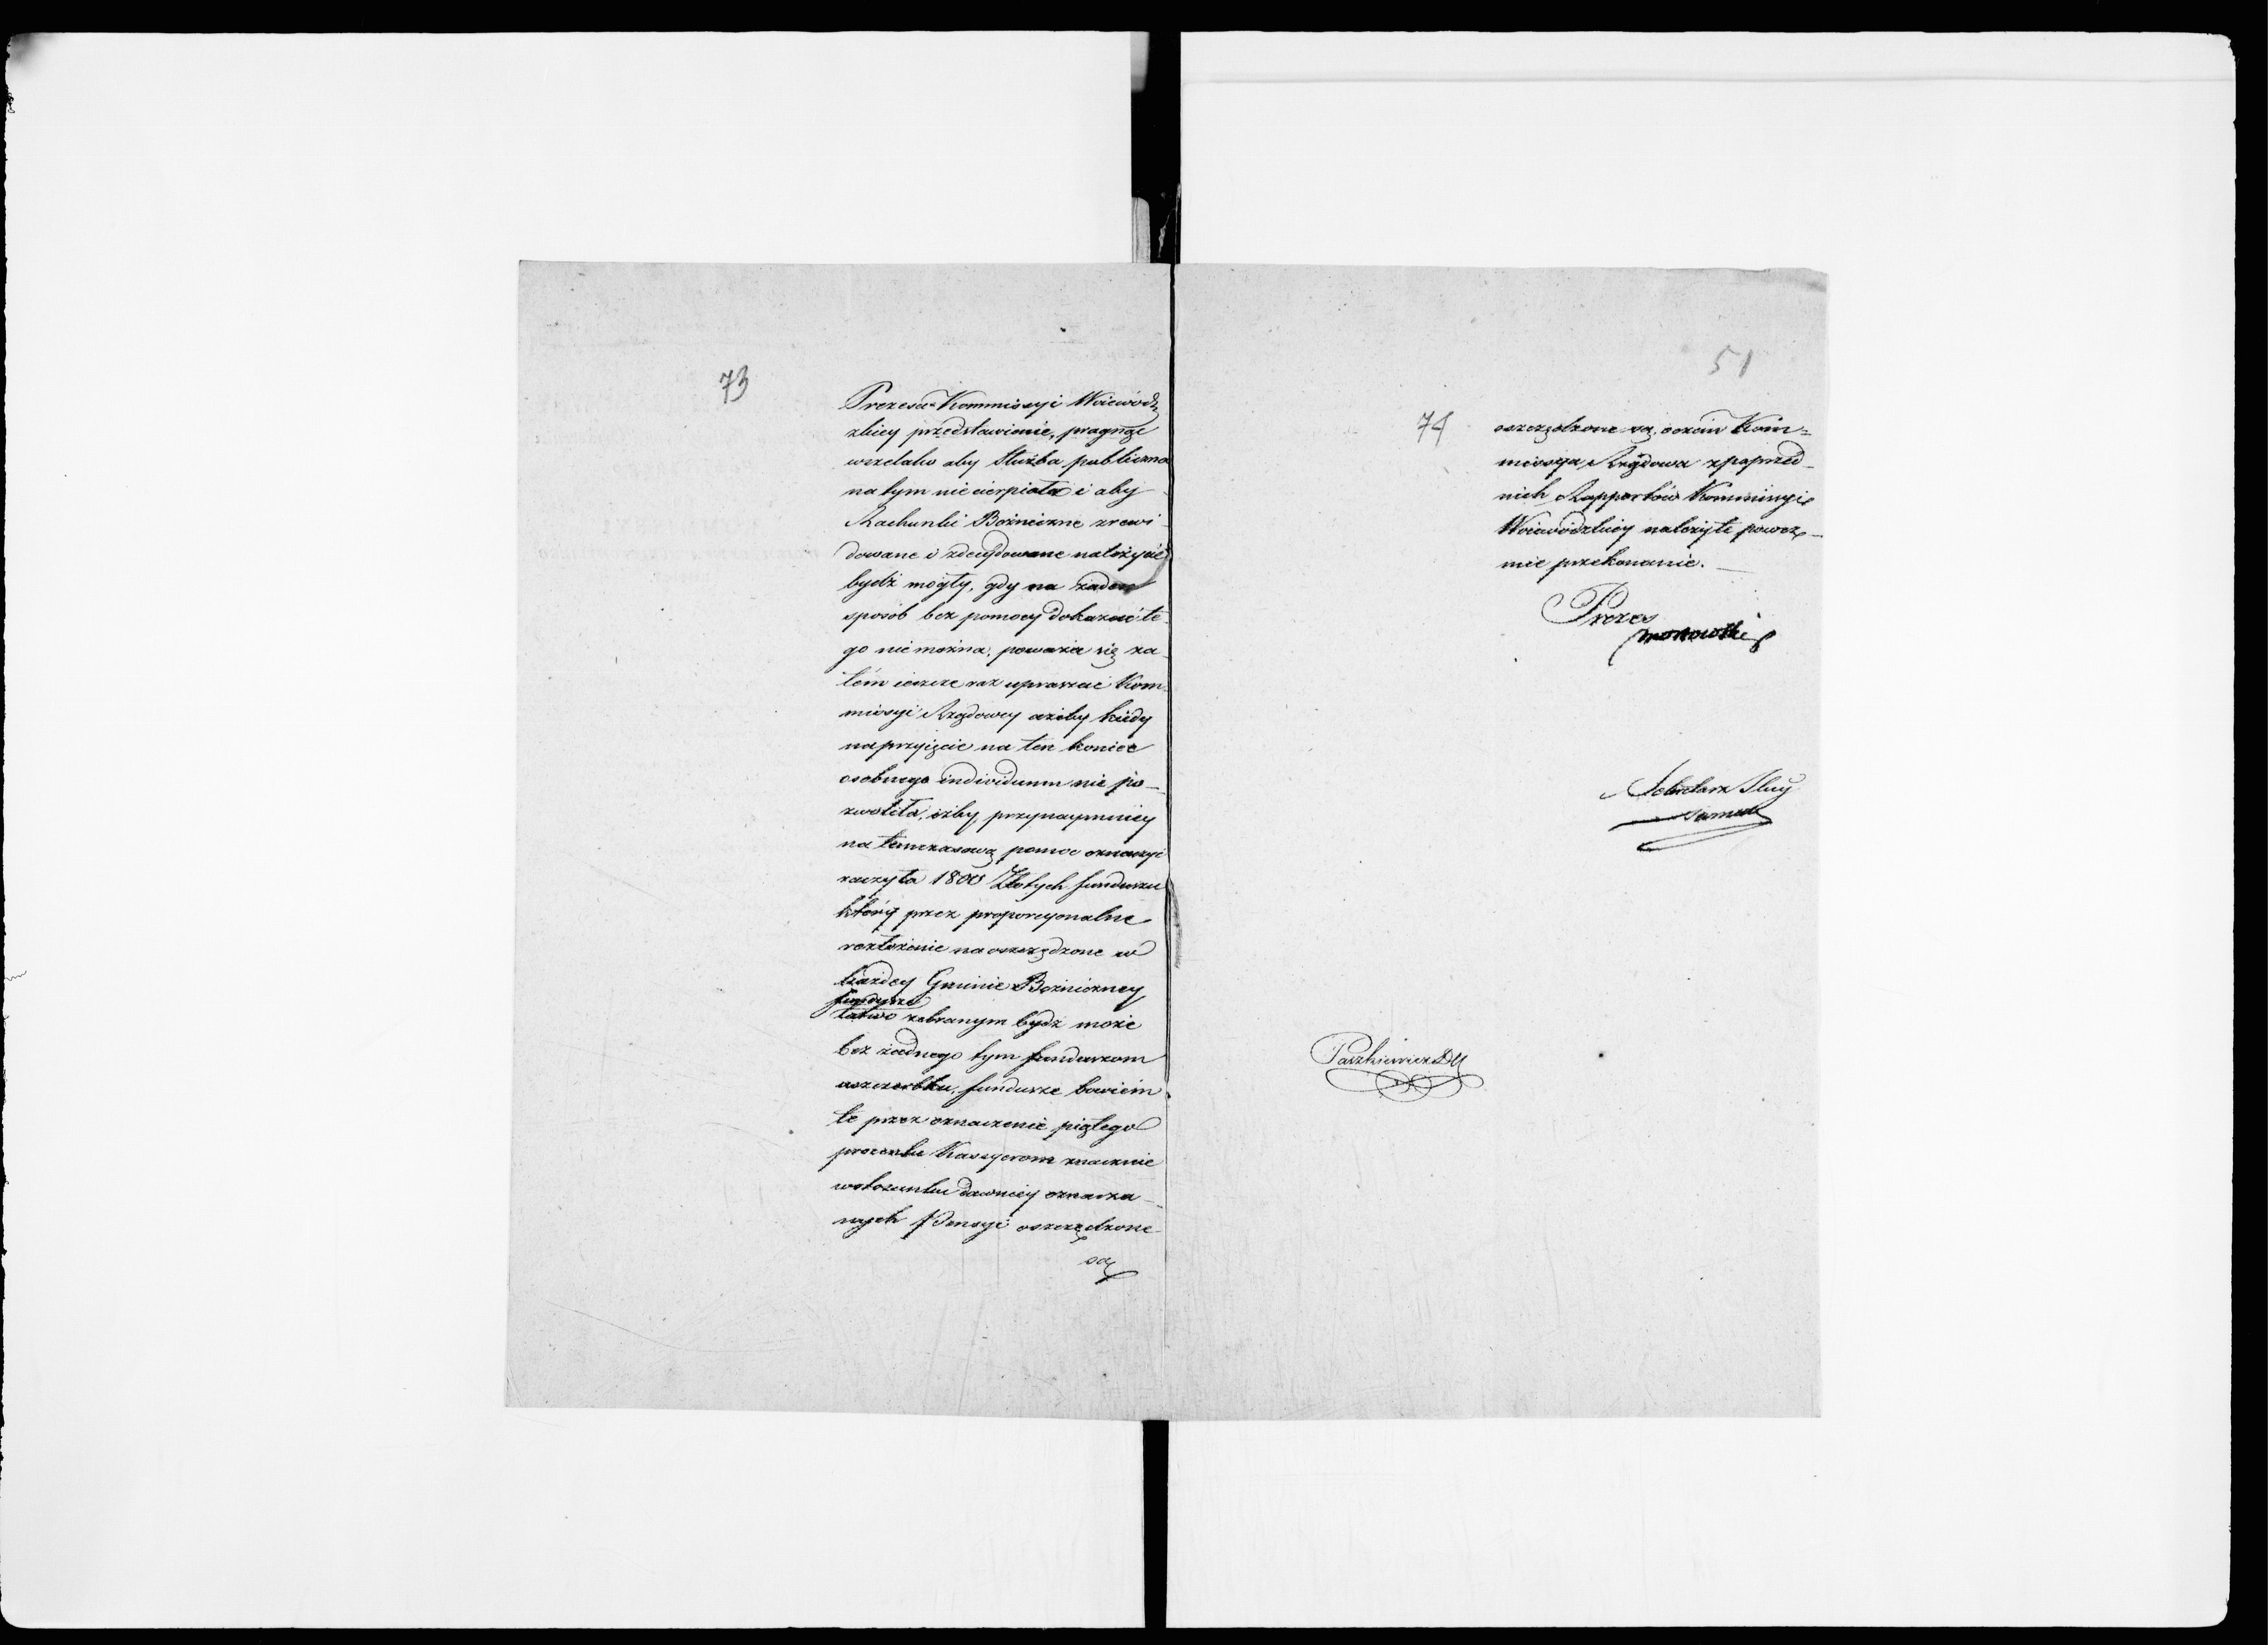 73
Prezesa Kommissyi Woiewódz
zkiey przedstawienie, pragnąc
wszelako aby Służba publiczna
na tym nie cierpiała i aby
Rachunki Bożniczne zrewi
dowane i zdecydowane należycie
bydź mogły, gdy na żaden
sposób bez pomocy dokazać te
go nie można, poważa się za
tém ieszcze raz upraszać Kom
missyi Rządowey ażeby kiedy
na przyięcie na ten koniec
osobnego individuum nie po-
zwoliła, iżby przynaymniey
na tymczasową pomoc oznaczyć
raczyła 1800 Złotych funduszu
który przez proporcyonalne
rozłożenie na oszczędzone w
każdey Gminie Bożniczney
fundusze
łatwo zebranym bydź może
bez żadnego tym funduszom
uszczerbku, fundusze bowiem
te przez oznaczenie piątego
procentu Kassyerom znacznie
w stosunku dawniey oznacza-
nych Pensyi oszczędzone
są
51
74
oszczędzone są, o czém Kom=
missya Rządowa z poprzed-
nich Rapportów Kommissyi
Woiewódzkiey należyte powez-
mie przekonanie.
Prezes
Sekretarz Jlny
Paszkiewicz